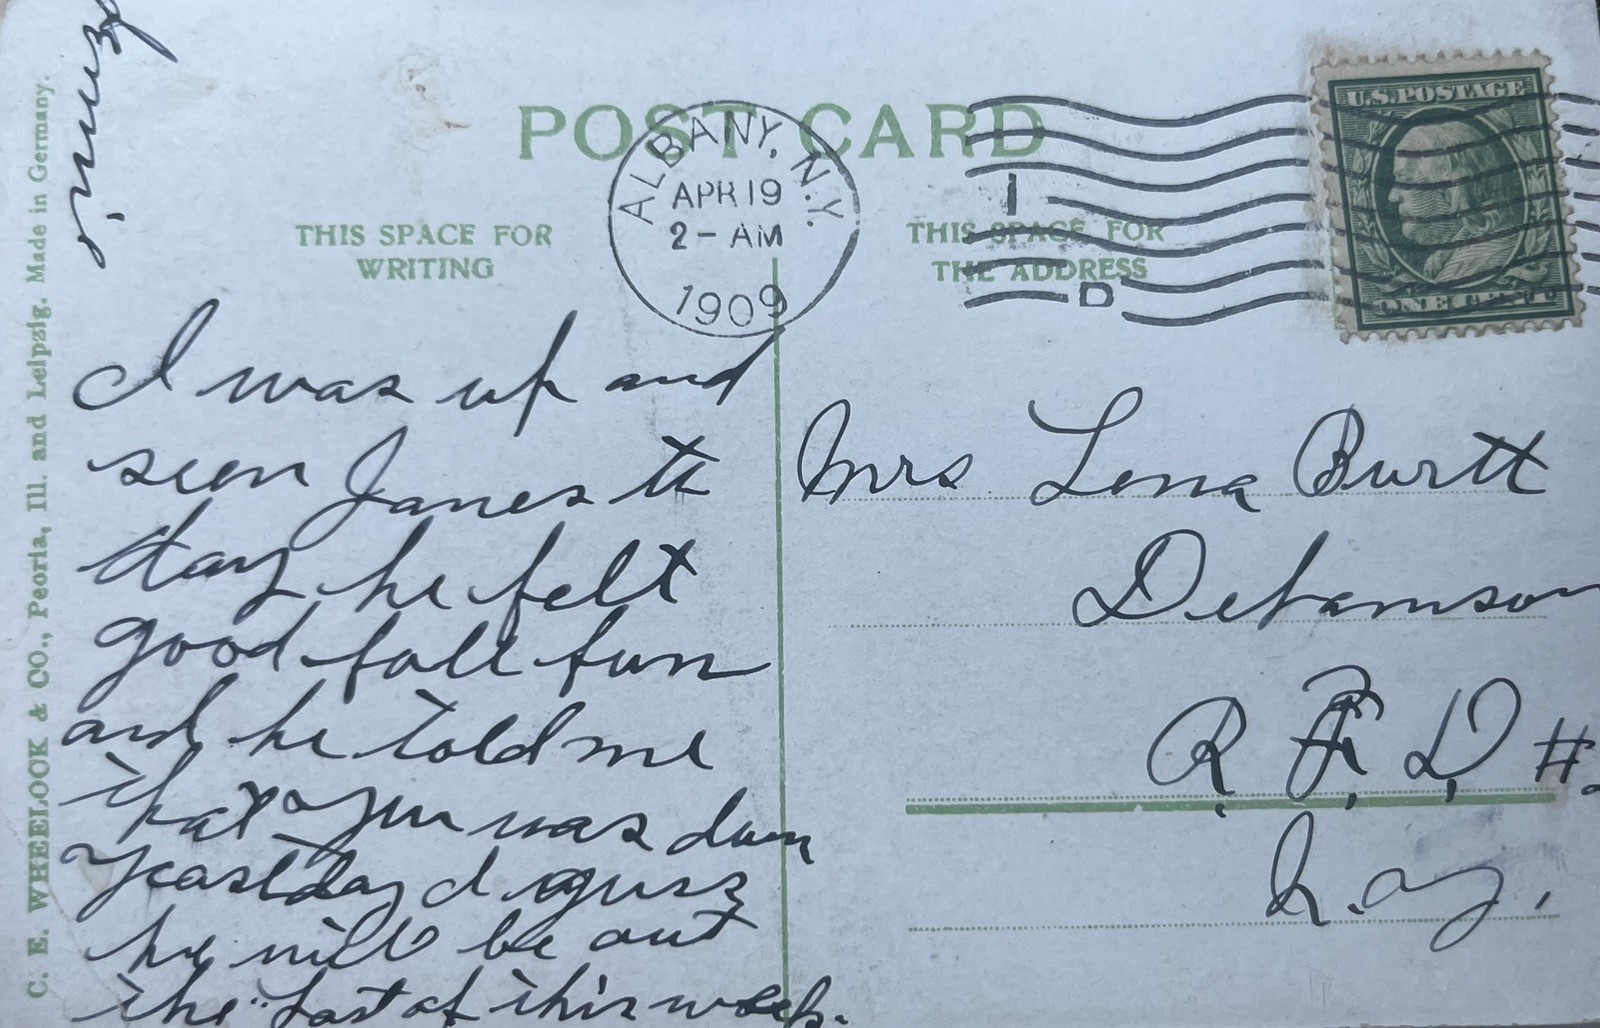 POST CARD
THIS SPACE FOR
WRITING
THIS SPACE FOR
THE ADDRESS
ALBANY, N.Y.
APR 19
2 - AM
1909
1
D
U.S. POSTAGE
ONE CENT
C. E. WHEELOCK & CO., Peoria, Ill. and Leipzig. Made in Germany.
I was up and
seen James to
day he felt
good full fun
and he told me
that you was down
yeastday I guss
he will be out
the last of this week.
Mrs Lena Burtt
Delamson
R. F. D #
N.Y.